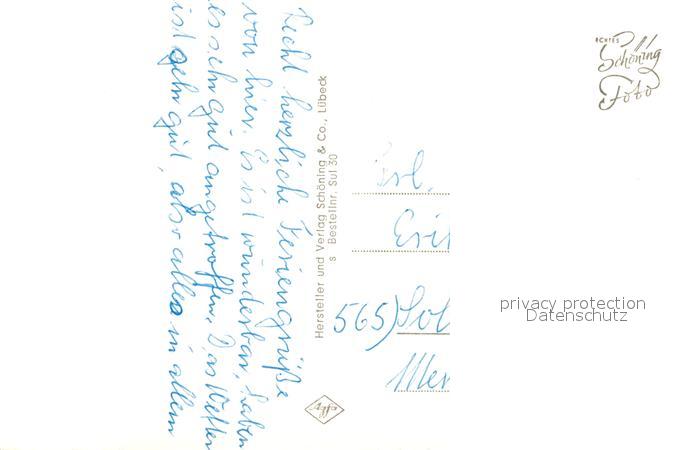 Recht herzliche Feriengrüße
von hier. Es ist wunderbar, haben
es sehr gut angetroffen. Das Wetter
ist sehr gut, also alles in allem
Hersteller und Verlag Schöning & Co., Lübeck
s Bestellnr. Sul 30
ECHTES
Schöning
Foto
Frl.
Eri
565) Sol
Mer
Agfa
privacy protection
Datenschutz